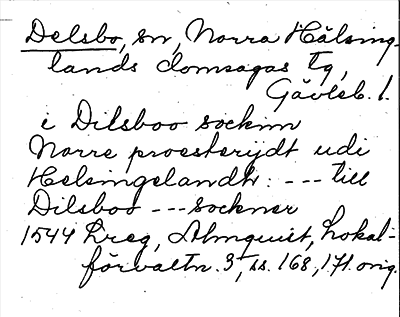 Delsbo, sn, Norra Hälsing-
lands domsagas tg,
Gävleb. l.
i Dilsboo sockinn
Norre proesterijdt udi
Helsingelandh: --- till
Dilsboo --- sockner
1544 Lreg, Almquist, Lokal-
förvaltn. 3, ss. 168, 171. orig.